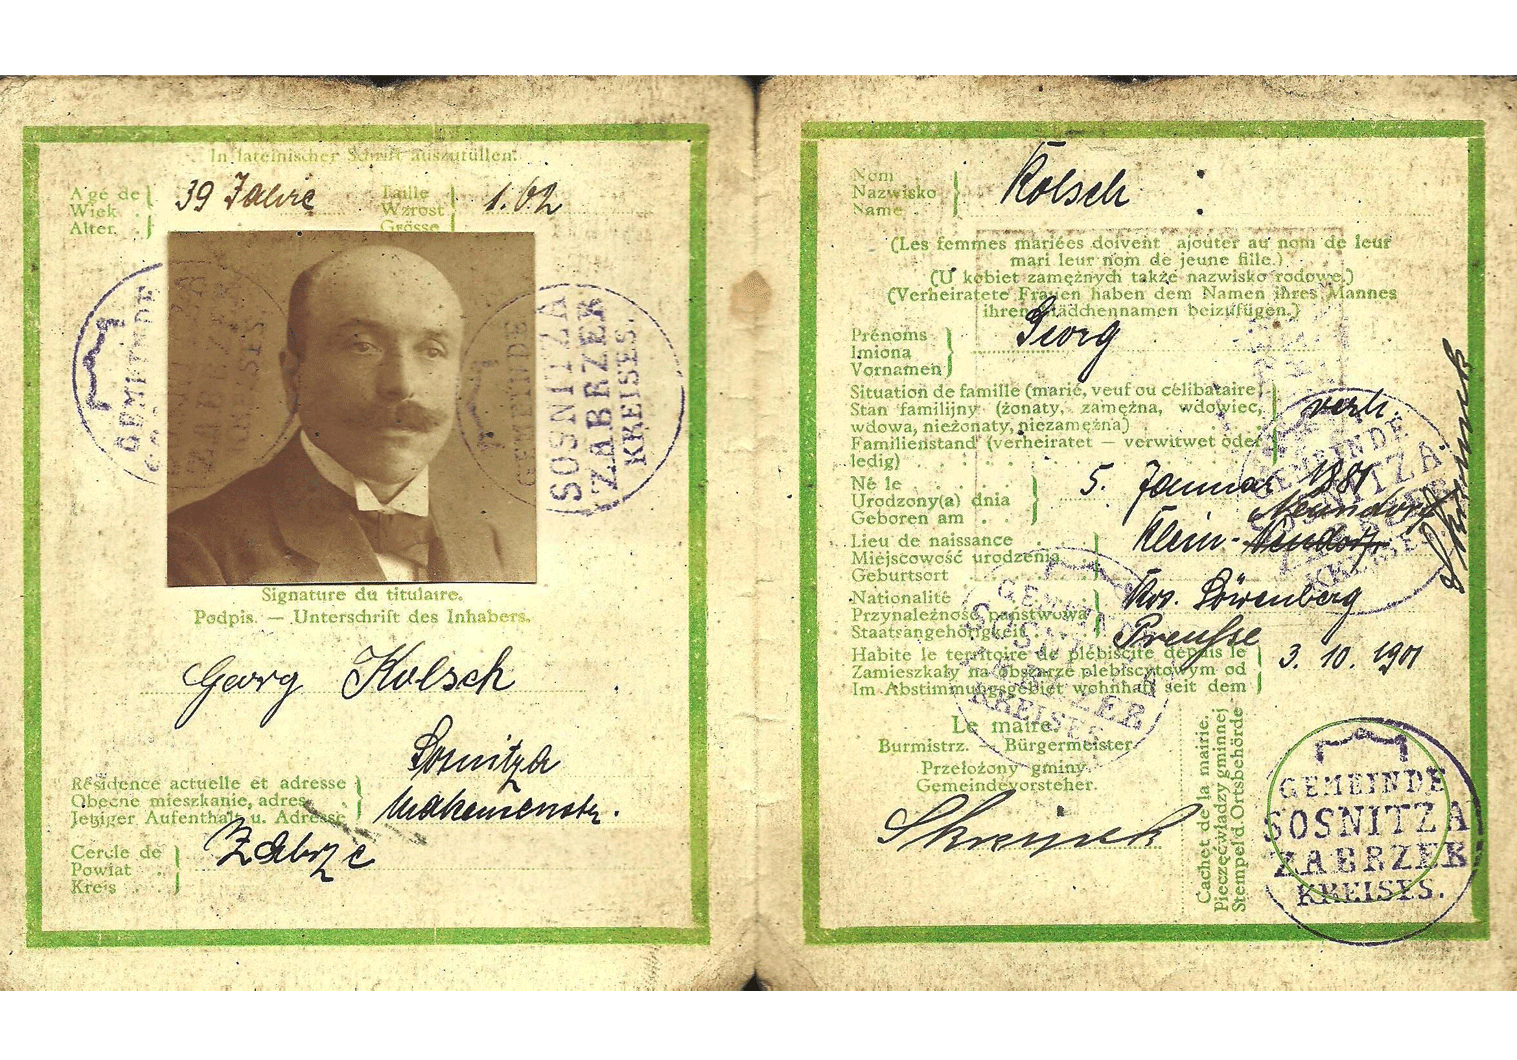 In lateinischer Schrift auszufüllen.
Agé de
Wiek
Alter.
39 Jahre
Taille
Wzrost
Grösse
GEMEINDE
GEMEINDE
SOSNITZA
ZABRZER
KREISES.
Signature du titulaire.
Podpis. — Unterschrift des Inhabers.
Georg Kolsch
Résidence actuelle et adresse
Obecne mieszkanie, adres
Jetziger Aufenthalt u. Adresse
Sosnitza
Cercle de
Powiat
Kreis
Zabrze
Nom
Nazwisko
Name
Kolsch
(Les femmes mariées doivent ajouter au nom de leur
mari leur nom de jeune fille.)
(U kobiet zamężnych także nazwisko rodowe.)
(Verheiratete Frauen haben dem Namen ihres Mannes
ihren Mädchennamen beizufügen.)
Prénoms
Imiona
Vornamen
Georg
Situation de famille (marié, veuf ou célibataire)
Stan familijny (żonaty, zamężna, wdowiec,
wdowa, nieżonaty, niezamężna)
Familienstand (verheiratet — verwitwet oder
ledig)
verh.
Né le
Urodzony(a) dnia
Geboren am
5. Januar 1881
Lieu de naissance
Miejscowość urodzenia
Geburtsort
Neundorf
Klein-Neudorf
Krs. Löwenberg
Nationalité
Przynależność państwowa
Staatsangehörigkeit
Preuße
Habite le territoire de plébiscite depuis le
Zamieszkały na obszarze plebiscytowym od
Im Abstimmungsgebiet wohnhaft seit dem
3. 10. 1901
GEMEINDE
SOSNITZA
ZABRZER
KREISES.
GEMEINDE
SOSNITZA
ZABRZER
KREISES.
Le maire
Burmistrz. — Bürgermeister
Przełożony gminy
Gemeindevorsteher.
Cachet de la mairie.
Pieczęć władzy gminnej
Stempel d. Ortsbehörde
GEMEINDE
SOSNITZA
ZABRZER
KREISES.